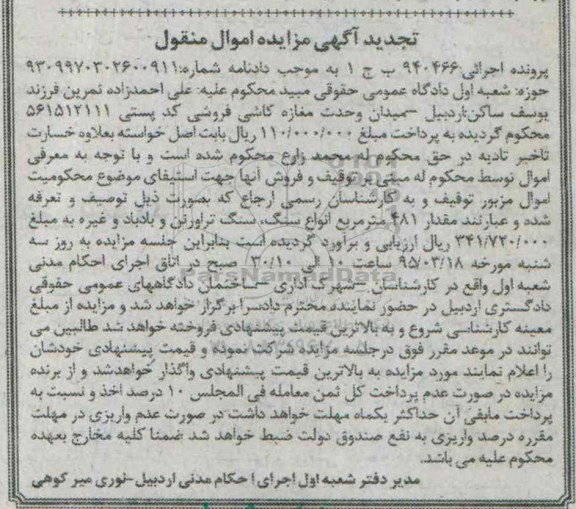 تجدید آگهی مزایده اموال منقول
پرونده اجرائی:۹۴۰۴۶۶ ب ج ۱ به موجب دادنامه شماره:۹۳۰۹۹۷۰۳۰۲۶۰۰۹۱۱
حوزه: شعبه اول دادگاه عمومی حقوقی میبد محکوم علیه: علی احمدزاده تمرین فرزند
یوسف ساکن:اردبیل –میدان وحدت مغازه کاشی فروشی کد پستی ۵۶۱۵۱۲۱۱۱
محکوم گردیده به پرداخت مبلغ ۱۱۰/۰۰۰/۰۰۰ ریال بابت اصل خواسته بعلاوه خسارت
تاخیر تادیه در حق محکوم له محمد زارع محکوم شده است و با توجه به معرفی
اموال توسط محکوم له مبنی بر توقیف و فروش آنها جهت استیفای موضوع محکومیت
اموال مزبور توقیف و به کارشناسان رسمی ارجاع که بصورت ذیل توصیف و تعرفه
شده و عبارتند مقدار ۴۸۱ مترمربع انواع سنگ، سنگ تراورتن و بادباد و غیره به مبلغ
۳۴۱/۷۲۰/۰۰۰ ریال ارزیابی و برآورد گردیده است بنابراین جلسه مزایده به روز سه
شنبه مورخه ۹۵/۰۳/۱۸ ساعت ۱۰ الی ۳۰/۱۰ صبح در اتاق اجرای احکام مدنی
شعبه اول واقع در کارشناسان –شهرک اداری –ساختمان دادگاههای عمومی حقوقی
دادگستری اردبیل در حضور نماینده محترم دادسرا برگزار خواهد شد و مزایده از مبلغ
معینه کارشناسی شروع و به بالاترین قیمت پیشنهادی فروخته خواهد شد طالبین می
توانند در موعد مقرر فوق درجلسه مزایده شرکت نموده و قیمت پیشنهادی خودشان
را اعلام نمایند مورد مزایده به بالاترین قیمت پیشنهادی واگذار خواهدشد و از برنده
مزایده در صورت عدم پرداخت کل ثمن معامله فی المجلس ۱۰ درصد اخذ و نسبت به
پرداخت مابقی آن حداکثر یکماه مهلت خواهد داشت در صورت عدم واریزی در مهلت
مقرره درصد واریزی به نفع صندوق دولت ضبط خواهد شد ضمنا کلیه مخارج بعهده
محکوم علیه می باشد.
مدیر دفتر شعبه اول اجرای احکام مدنی اردبیل-نوری میر کوهی
ParsNamadData